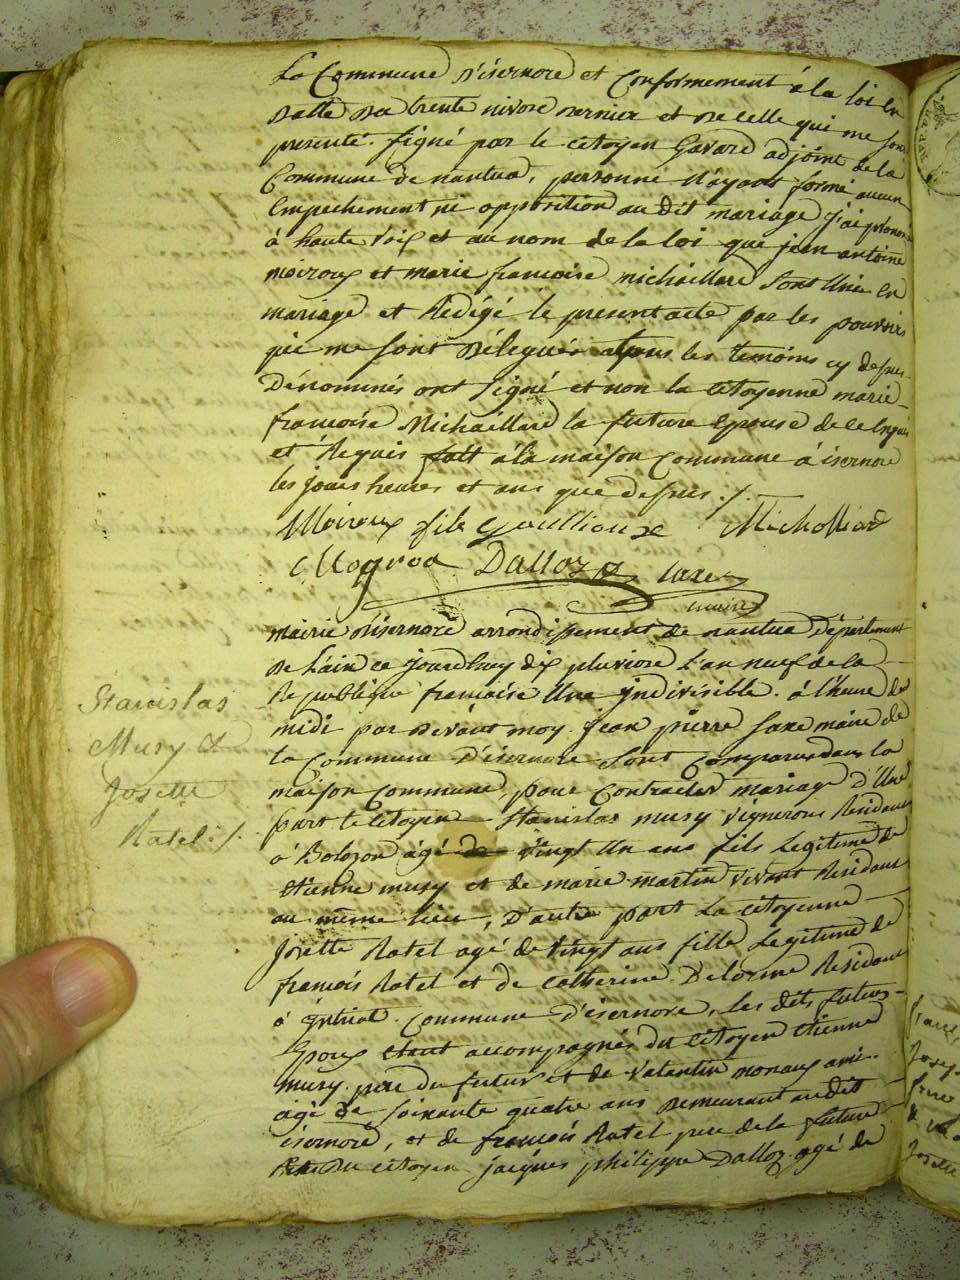 La Commune d'isernore et Conformement á la loi en
datte du trente nivose dernier et de celle qui me sont
presenté. signé par le citoyen Gavard adjoint de la
Commune de nantua, personne n'ayant formé aucun
Empechement ni opposition au dit mariage j'ai prononcé
à haute voix et au nom de la loi que jean antoine
moiroux et marie francoise michaillard sont Unie en
mariage et Rédégé le present acte par les pouvoirs
qui me sont délegués les temoins cy dessus
dénommés ont signé et non la citoyenne marie
francoise Michaillard la future Epouse de ce Enquis
et Requis fait á la maison Commune á isernore
les jours heures et ans que dessus ./.
Moiroux fils Gouilloux Michollard
Mogroa Dalloz Saxe
maire
mairie d'isernore arrondissement de nantua département
de L'ain ce jourdhuy dix pluviose L'an neuf de la
Republique francaise Une indivisible. á l'heure de
midi par devant moy jean pierre Saxe maire de
la Commune d'isernore sont Comparus dans la
maison Commune, pour Contracter mariage d'Une
part le citoyen Stanislas musy vigneron Residant
á Bolozon agé de vingt Un ans fils Legitime de
etienne musy et de marie martin vivant Residant
au même lieu, D'autre part La citoyenne
Josette Ratel agé de vingt ans fille Legitime de
francois Ratel et de catherine Delorme Residant
á intriat. Commune d'isernore, les dits futurs
Epoux etant accompagnés du citoyen etienne
musy pere du futur et de valentin monaux ami
agé de soixante quatre ans demeurant au dit
isernore, et de francois Ratel pere de la future
du citoyen jacques philippe Dalloz agé de
Stanislas
Musy &
Josette
Ratel ./.